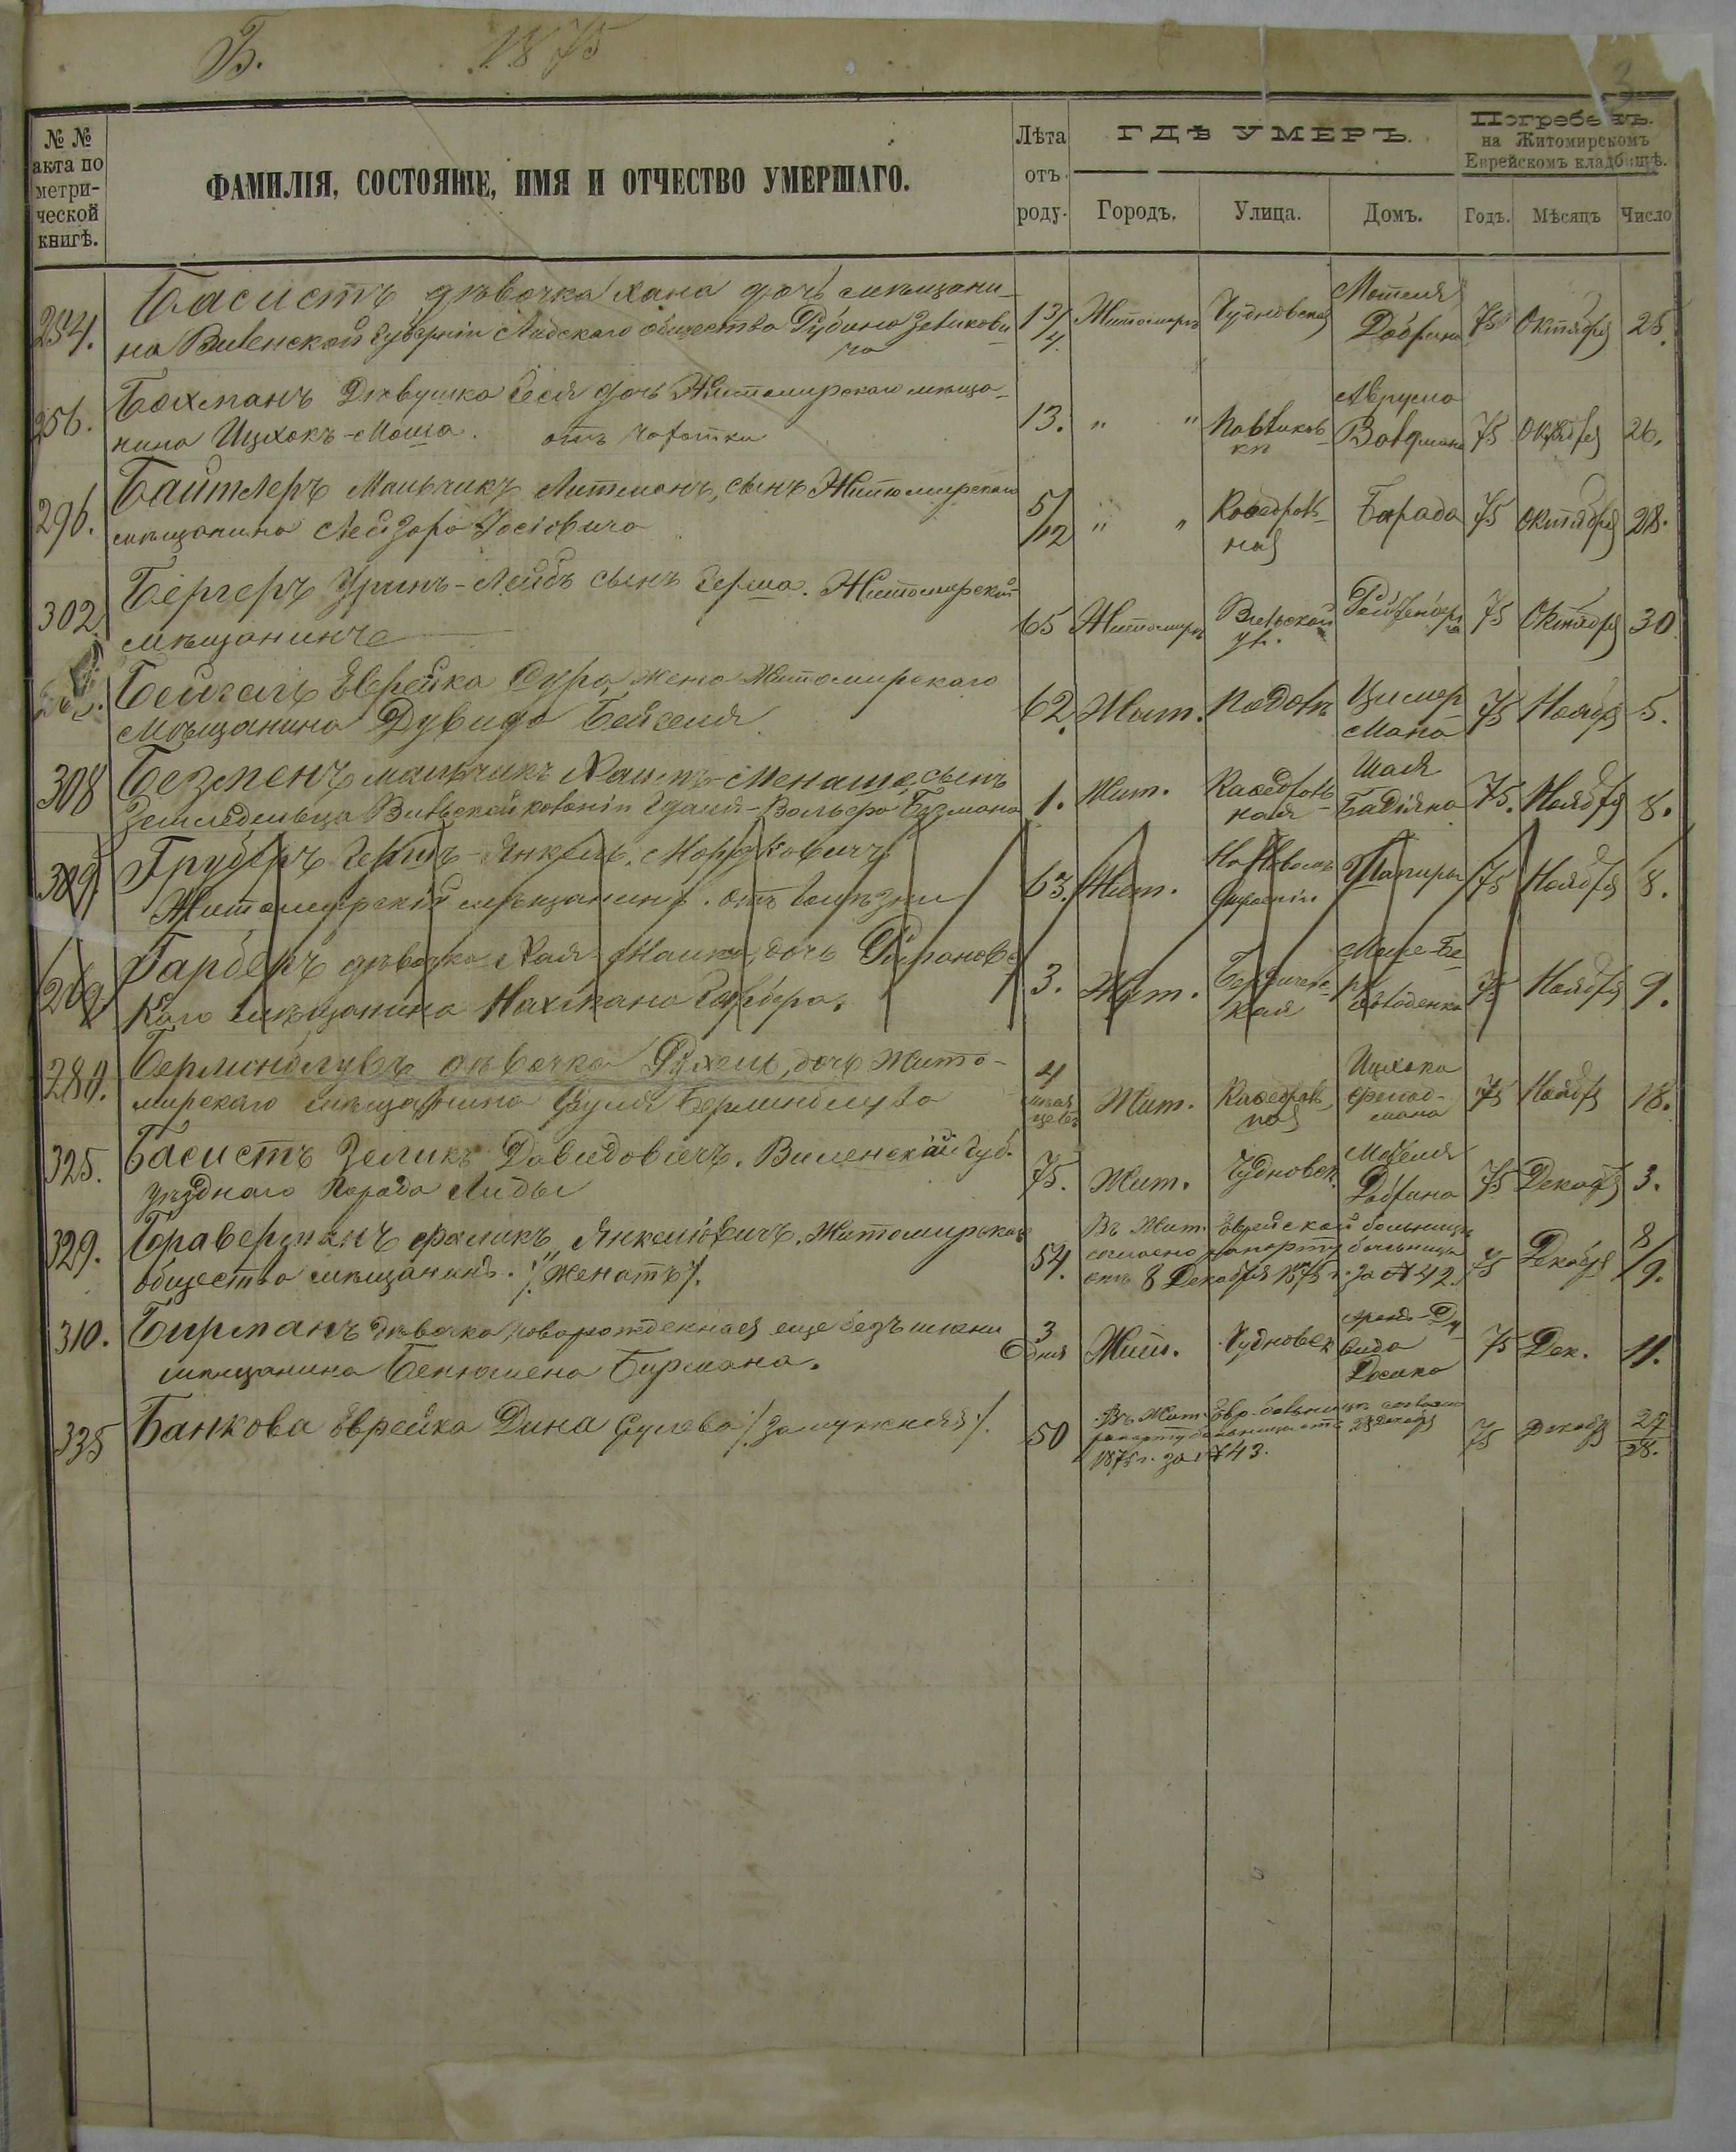 Б. 1875
3
№ №
акта по
метри-
ческой
книгѣ.
ФАМИЛІЯ, СОСТОЯНІЕ, ИМЯ И ОТЧЕСТВО УМЕРШАГО.
Лѣта
отъ
роду.
ГДѢ УМЕРЪ.
Городъ. Улица. Домъ.
Погребенъ.
на Житомирскомъ
Еврейскомъ кладбищѣ.
Годъ. Мѣсяцъ Число
254. Басистъ дѣвочка Хана дочь мѣщани-
на Виленской губерніи Лидскаго общества Рубина Зеликови
ча
1 3/4 Житомиръ Чудновская Мотеля
Добрина 75 Октября 25.
256. Бахманъ Дѣвушка Бейля дочь Житомирскаго мѣща-
нина Ицхокъ-Моша. отъ чахотки
13. " " Павликов-
ки Аврума
Волдмана 75 Октября 26.
296. Байтлеръ Мальчикъ Литманъ, сынъ Житомирскаго
мѣщанина Лейзора Іосіовича
5/12 " " Каѳедраль-
ная Барада 75 Октября 28.
302. Бергеръ Уринъ-Лейбъ сынъ Герша. Житомирскій
мѣщанинъ
65 Житомиръ Вильской
ул. Рейзенберга 75 Октября 30
Бейгель Еврейка Сура, жена Житомирскаго
Мѣщанина Дувида Бейгеля
62. Жит. Подолъ Цимер
мана 75 Ноября 5.
308 Безменъ мальчикъ Хаимъ-Менаше, сынъ
Земледельца Вильской колоніи Гдаля-Вольфа Безмана
1. Жит. Каѳедраль-
ная Шаля
Бадіяна 75. Ноября 8.
309 Груберъ Гершъ-Янкель Мордковичъ
Житомирскій мѣщанинъ. отъ болѣзни
63. Жит. Шапиры 75 Ноября 8.
269 Гарберъ дѣвочка Хая-Маика, дочь Романовс
каго мѣщанина Нахмана Гарбера.
3. Жит. Бердичевс-
кая 75 Ноября 9.
280. Берминблувъ дѣвочка Рухель, дочь Жито-
мирскаго мѣщанина Фуля Берминблува
4
мѣся
цевъ Жит. Каѳедраль
ная Ицхока
Фрид-
мана 75 Ноября 18.
325. Басистъ Зеликъ Давидовичъ. Виленской Губ.
уѣзднаго города Лиды
75. Жит. Чудновск. Мотеля
Добрина 75 Декабр 3.
329. Браверманъ Фаликъ Янкеліовичъ. Житомирскаго
общества мѣщанинъ. /: Женатъ :/.
54. Въ Жит. Еврейской больницѣ
согласно рапорту больницы
отъ 8 Декабря 1875 г. за № 42. 75 Декабря 8/9.
310. Бирманъ дѣвочка новорожденная еще безъ имени
мѣщанина Бенюмена Бирмана.
3
дня Жит. Чудновск аренд. Ду
вида 75 Дек. 11.
335 Банкова Еврейка Дина Сулева /: замужняя :/.
50 Въ Жит. Евр. больницѣ согласно
рапорту больницы отъ 28 декабря
1875 г. за № 43. 75 Декабр 27/28.